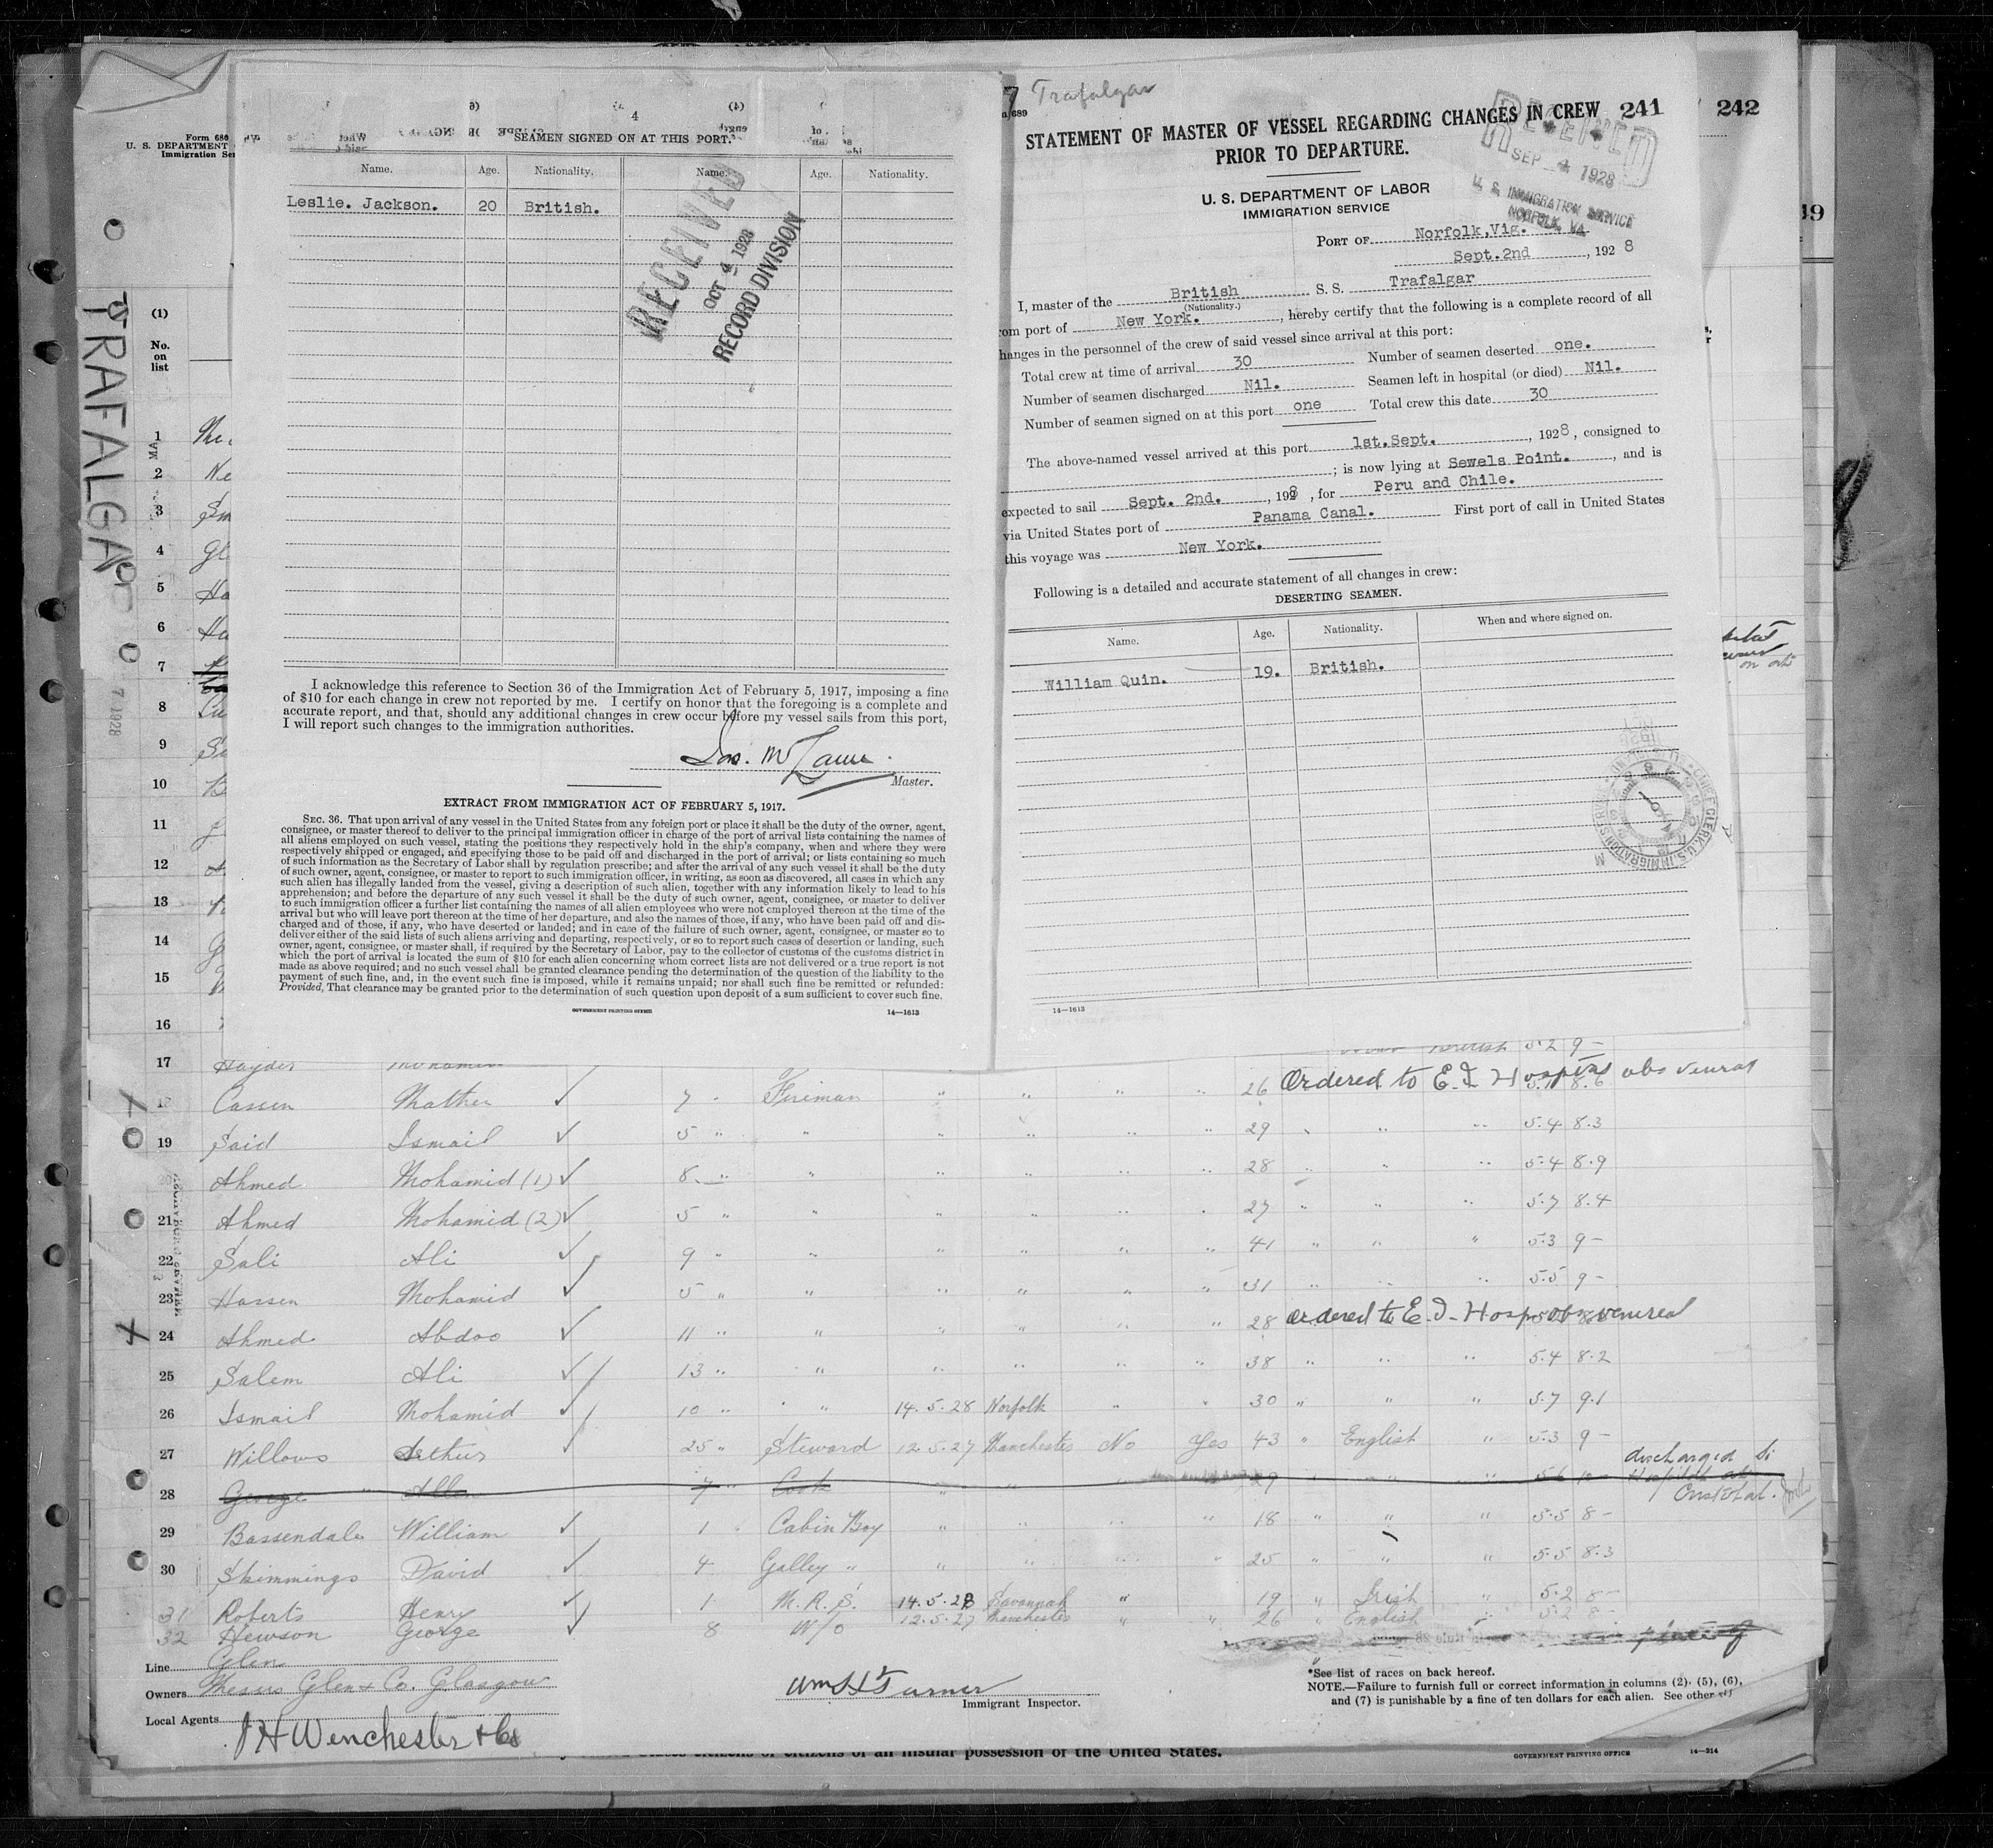 4
SEAMEN SIGNED ON AT THIS PORT.
Name. Age. Nationality. Name. Age. Nationality.
Leslie. Jackson. 20 British.
RECEIVED
OCT 4 1928
RECORD DIVISION
I acknowledge this reference to Section 36 of the Immigration Act of February 5, 1917, imposing a fine
of $10 for each change in crew not reported by me. I certify on honor that the foregoing is a complete and
accurate report, and that, should any additional changes in crew occur before my vessel sails from this port,
I will report such changes to the immigration authorities.
Master.
EXTRACT FROM IMMIGRATION ACT OF FEBRUARY 5, 1917.
SEC. 36. That upon arrival of any vessel in the United States from any foreign port or place it shall be the duty of the owner, agent,
consignee, or master thereof to deliver to the principal immigration officer in charge of the port of arrival lists containing the names of
all aliens employed on such vessel, stating the positions they respectively hold in the ship's company, when and where they were
respectively shipped or engaged, and specifying those to be paid off and discharged in the port of arrival; or lists containing so much
of such information as the Secretary of Labor shall by regulation prescribe; and after the arrival of any such vessel it shall be the duty
of such owner, agent, consignee, or master to report to such immigration officer, in writing, as soon as discovered, all cases in which any
such alien has illegally landed from the vessel, giving a description of such alien, together with any information likely to lead to his
apprehension; and before the departure of any such vessel it shall be the duty of such owner, agent, consignee, or master to deliver
to such immigration officer a further list containing the names of all alien employees who were not employed thereon at the time of the
arrival but who will leave port thereon at the time of her departure, and also the names of those, if any, who have been paid off and dis-
charged and of those, if any, who have deserted or landed; and in case of the failure of such owner, agent, consignee, or master so to
deliver either of the said lists of such aliens arriving and departing, respectively, or so to report such cases of desertion or landing, such
owner, agent, consignee, or master shall, if required by the Secretary of Labor, pay to the collector of customs of the customs district in
which the port of arrival is located the sum of $10 for each alien concerning whom correct lists are not delivered or a true report is not
made as above required; and no such vessel shall be granted clearance pending the determination of the question of the liability to the
payment of such fine, and, in the event such fine is imposed, while it remains unpaid; nor shall such fine be remitted or refunded:
Provided, That clearance may be granted prior to the determination of such question upon deposit of a sum sufficient to cover such fine.
GOVERNMENT PRINTING OFFICE 14—1613
Trafalgar
STATEMENT OF MASTER OF VESSEL REGARDING CHANGES IN CREW 241 242
PRIOR TO DEPARTURE.
RECEIVED
SEP 4 1928
U. S. IMMIGRATION SERVICE
NORFOLK, VA.
U. S. DEPARTMENT OF LABOR
IMMIGRATION SERVICE
PORT OF Norfolk,Vig.
Sept.2nd , 1928
I, master of the British S. S. Trafalgar
(Nationality.)
om port of New York. , hereby certify that the following is a complete record of all
hanges in the personnel of the crew of said vessel since arrival at this port:
Total crew at time of arrival 30 Number of seamen deserted one.
Number of seamen discharged Nil. Seamen left in hospital (or died) Nil.
Number of seamen signed on at this port one Total crew this date 30
The above-named vessel arrived at this port 1st.Sept. , 1928, consigned to
; is now lying at Sewels Point. , and is
expected to sail Sept. 2nd. , 1928 , for Peru and Chile.
via United States port of Panama Canal. First port of call in United States
this voyage was New York.
Following is a detailed and accurate statement of all changes in crew:
DESERTING SEAMEN.
Name. Age. Nationality. When and where signed on.
William Quin. 19. British.
14—1613
Form 680
U. S. DEPARTMENT
Immigration Ser
TRAFALGAR
(1)
No.
on
list
1
2
3
4
5
6
7
8
9
10
11
12
13
14
15
16
17 Hayder
18 Cassen Mather 7 Fireman 26 Ordered to E.I Hospital obs veneral
19 Said Ismail 5 " " 29 5.4 8.3
20 Ahmed Mohamid (1) 8 " " 28 5.4 8.9
21 Ahmed Mohamid (2) 5 " " 27 5.7 8.4
22 Sali Ali 9 " " 41 5.3 9 –
23 Hassen Mohamid 5 " " 31 5.5 9 –
24 Ahmed Abdoo 11 " " 28 Ordered to E.I- Hosp obs veneral
25 Salem Ali 13 " " 38 5.4 8.2
26 Ismail Mohamid 10 " " 14.5.28 Norfolk " " 30 " " " 5.7 9.1
27 Willows Arthur 25 " Steward 12.5.27 Manchester No Yes 43 " English " 5.3 9 –
28 George Allen 7 " Cook 29 discharged to Hospital at Cristobal.
29 Bassendale William 1 Cabin Boy 18 5.5 8 –
30 Skimmings David 4 Galley " 25 5.5 8.3
31 Roberts Henry 1 M. R. S. 14.5.28 Savannah " 19 " Irish " 5.2 8 –
32 Hewson George 8 W/o 12.5.27 Manchester " " 26 " English " 5.2 8
Line Glen
Owners Messrs Glen & Co. Glasgow
Local Agents J H Winchester & Co
Wm H Turner
Immigrant Inspector.
*See list of races on back hereof.
NOTE.—Failure to furnish full or correct information in columns (2), (5), (6),
and (7) is punishable by a fine of ten dollars for each alien. See other
citizens or citizens of an insular possession of the United States.
GOVERNMENT PRINTING OFFICE 14—214